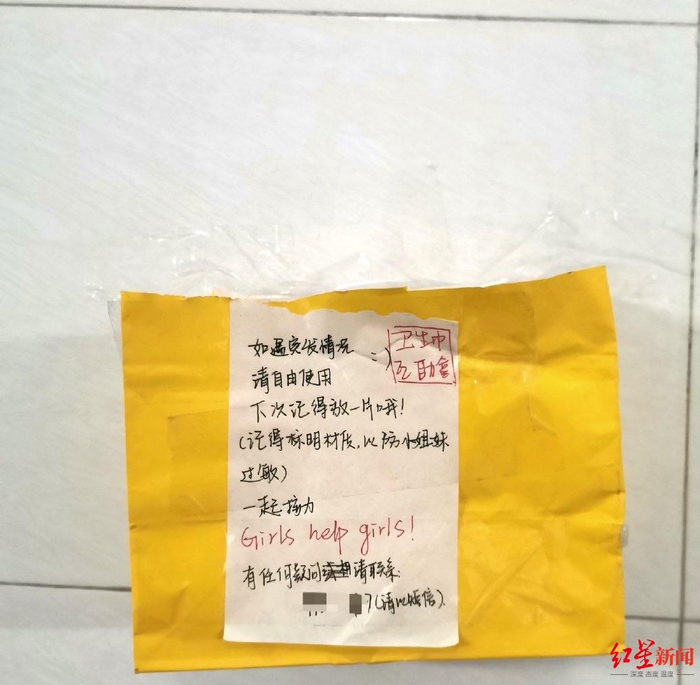 如遇突发情况 :)
卫生巾
互助盒
请自由使用
下次记得放一片哦!
(记得标明材质,以防小姐妹
过敏)
一起接力
Girls help girls!
有任何疑问请联系
(请以短信).
红星新闻
深度 态度 温度